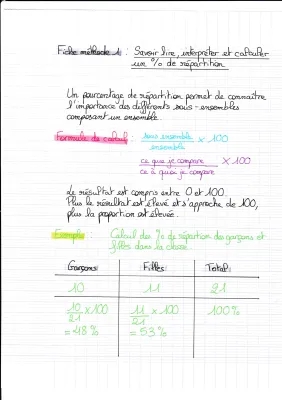 Fiche méthode 1 : Savoir lire, interpréter et calculer
un % de répartition
Un pourcentage de répartition permet de connaître
l'importance des différents sous-ensembles
composant un ensemble.
Formule de calcul : sous ensemble / ensemble × 100
ce que je compare / ce à quoi je compare × 100
Le résultat est compris entre 0 et 100.
Plus le résultat est élevé et s'approche de 100,
plus la proportion est élevée.
Exemple : Calcul des % de répartition des garçons et
filles dans la classe.
Garçons Filles Total
10 11 21
10/21 × 100 11/21 × 100 100%
= 48% = 53%